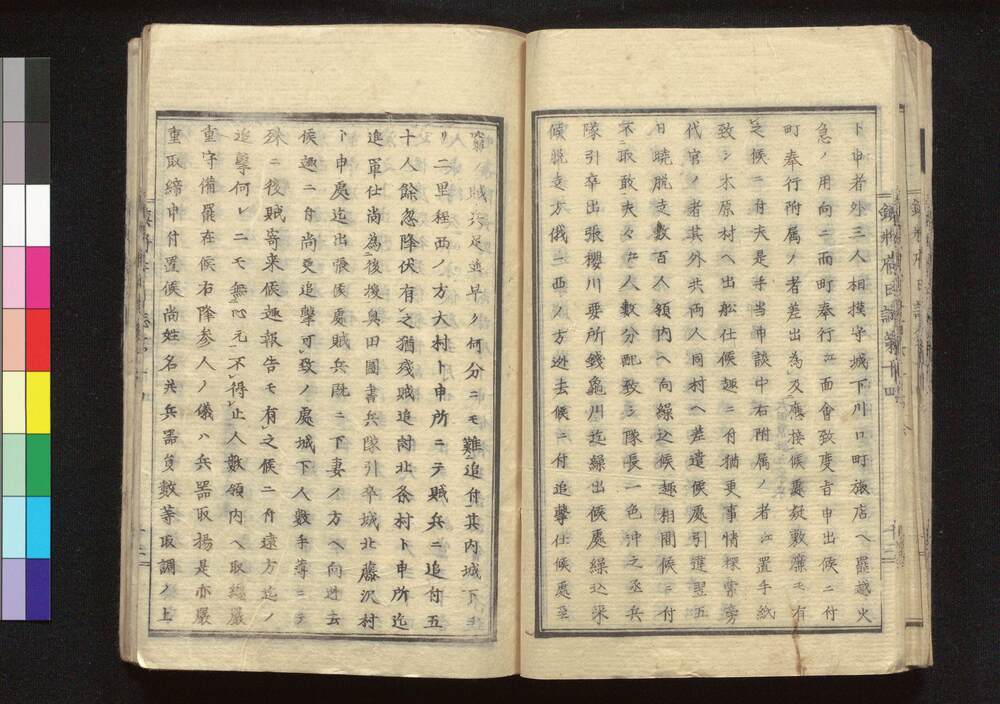 ト申者外三人相摸守城下川口町旅店ヘ罷越火
急ノ用向ニ而町奉行江面會致度旨申出候ニ付
町奉行附属ノ者差出為及應接候處疑敷廉モ有
之候ニ付夫是手当申談中右附属ノ者江置手紙
致シ木原村ヘ出舩仕候趣ニ付猶更事情探索旁
代官ノ者其外共両人同村ヘ差遣候處引違翌五
日暁脱走数百人領内ヘ向繰込候趣相聞候ニ付
不取敢夫々江人数分配致シ隊長一色冲之丞兵
隊引卒出張櫻川要所錢亀川迄繰出候處繰込来
候脱走方俄ニ西ノ方逃去候ニ付追撃仕候處至
窮ノ賊兵逃迯早ク何分ニモ難追付其内城下ヨ
リ二里程西ノ方大村ト申所ニテ賊兵ニ追付五
十人餘忽降伏有之猶残賊追討北条村ト申所迄
進軍仕尚為後援奥田圖書兵隊引卒城北藤沢村
ト申處迄出張候處賊兵既ニ下妻ノ方ヘ向逃去
候趣ニ付尚更追撃可致ノ處城下人数手薄ニテ
殊ニ後賊寄来候趣報告モ有之候ニ付遠方迄ノ
追撃何レニモ無心元不得止人數領内ヘ取纏嚴
重守備罷在候右降参人ノ儀ハ兵器取揚是亦嚴
重取締申付置候尚姓名共兵器員數等取調ノ上
鎮将府日誌第十四